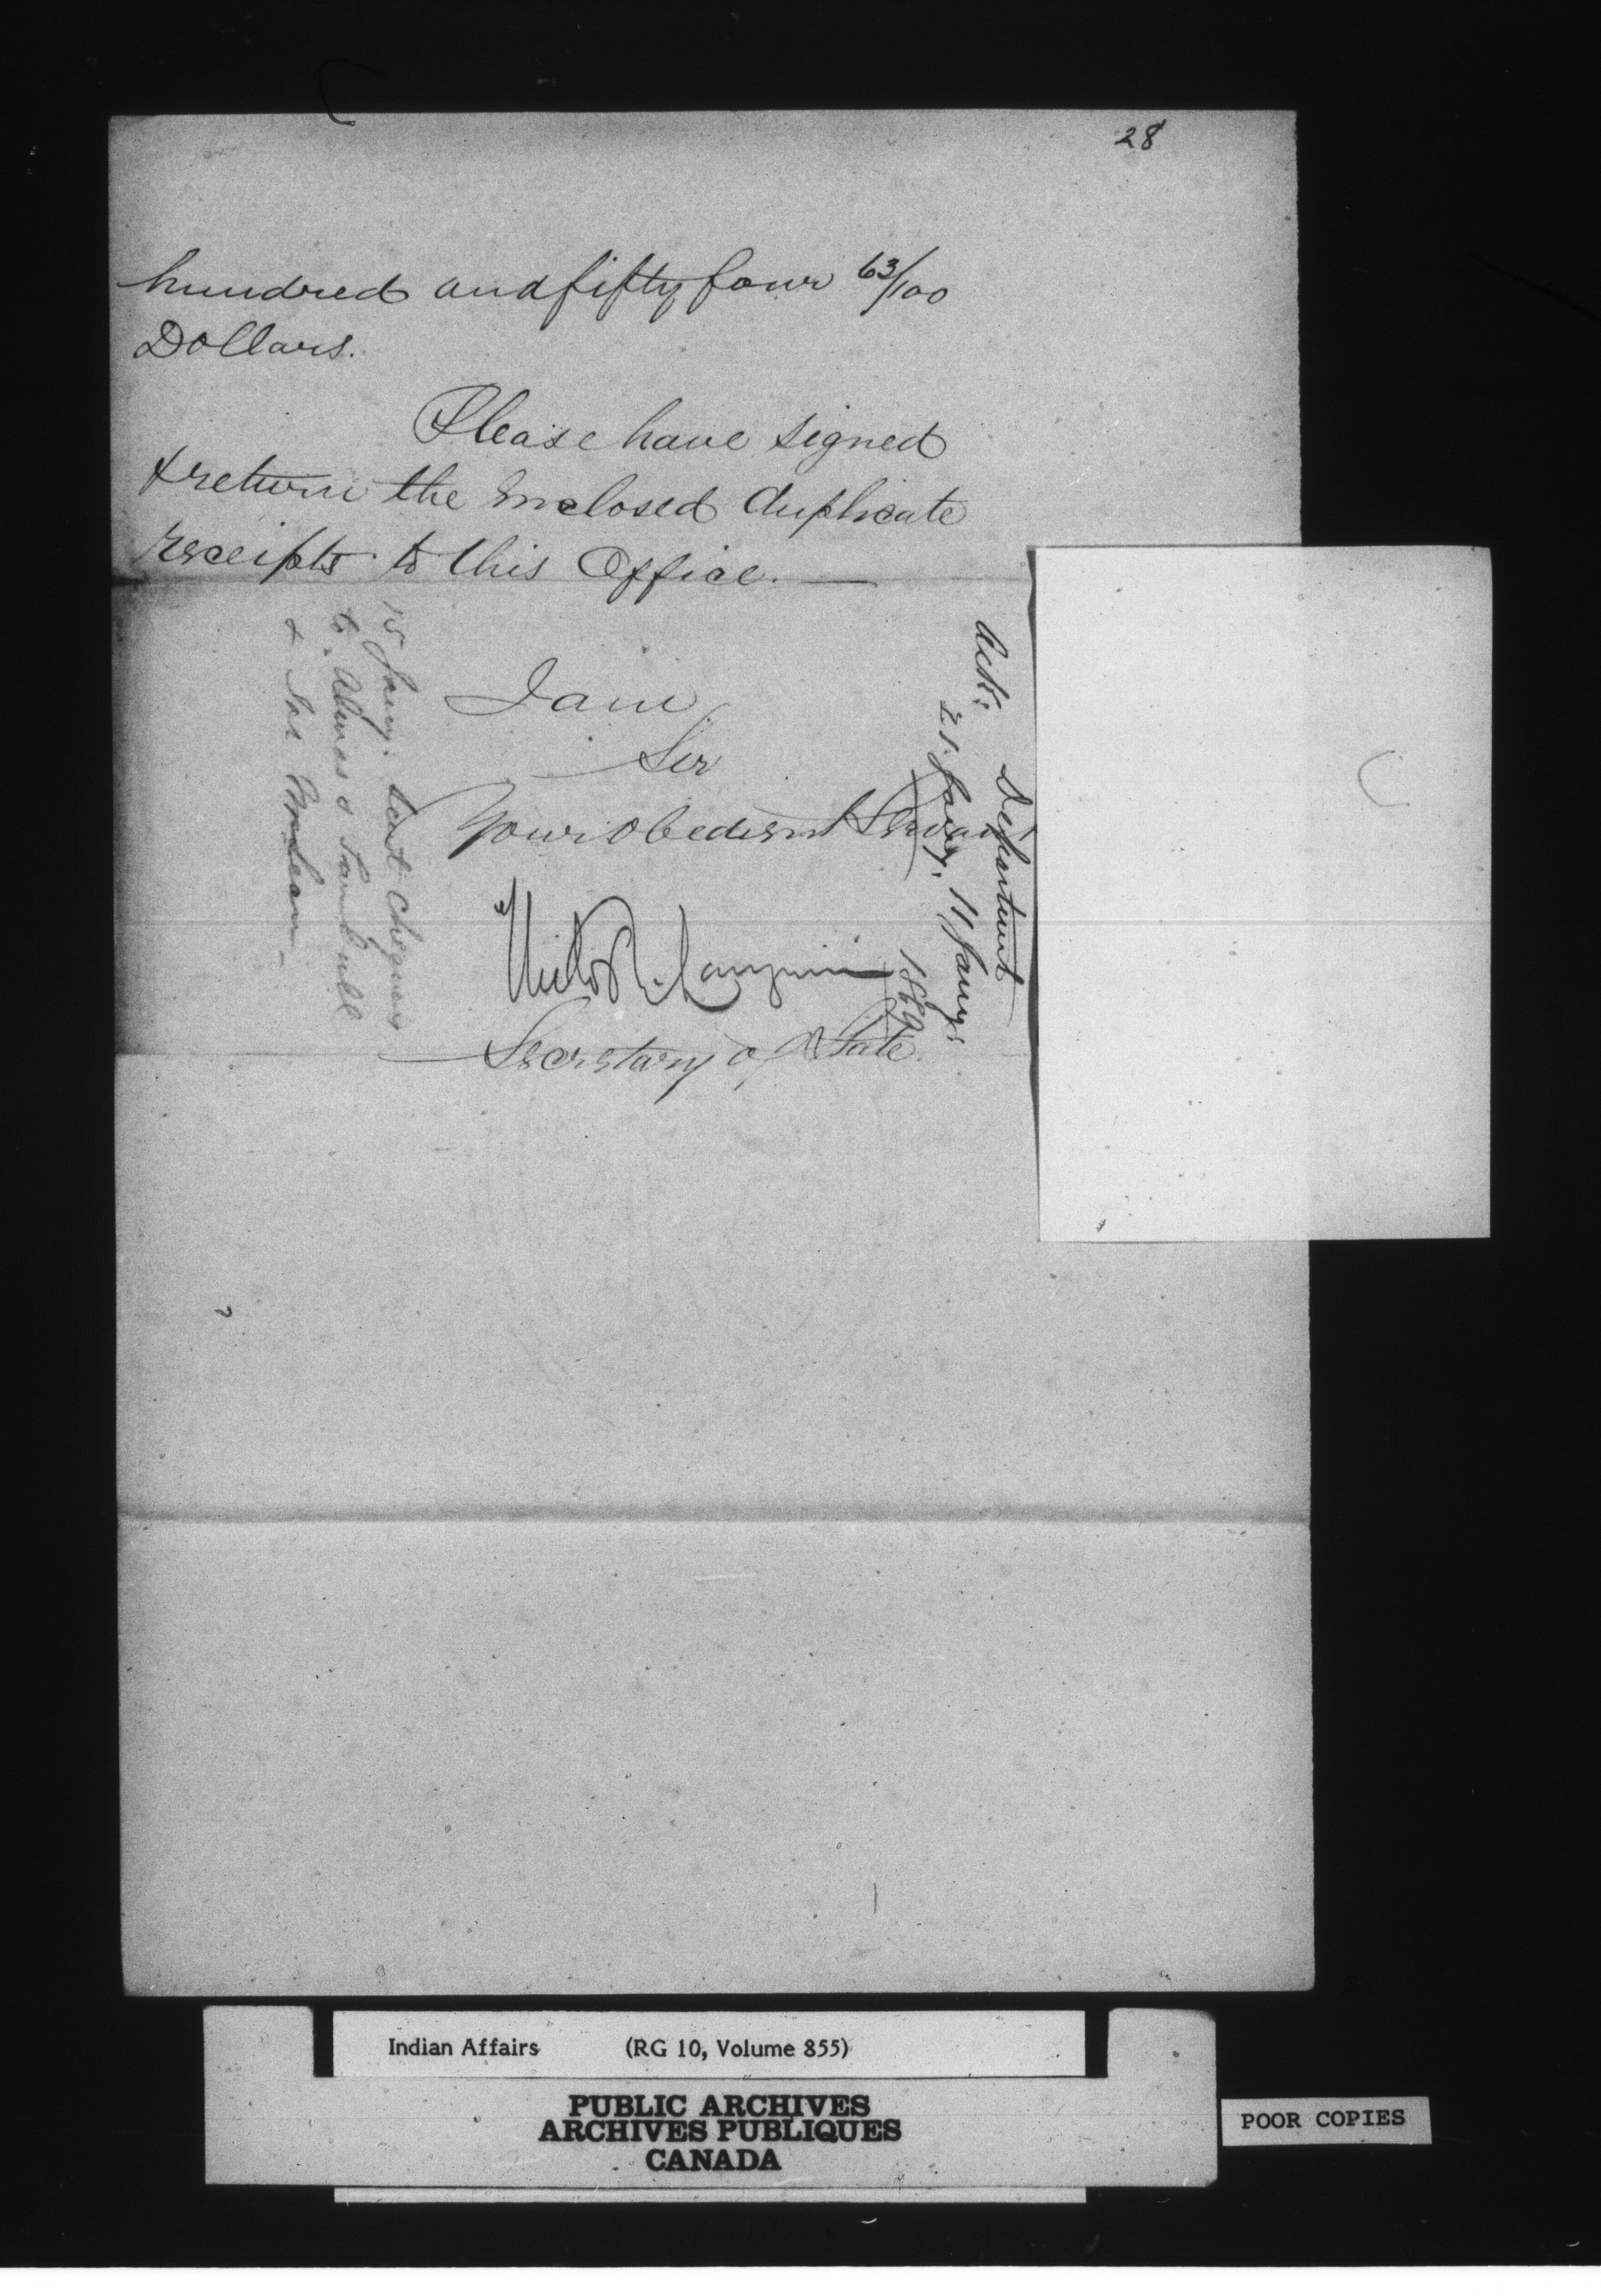 28
hundred and fifty four 63/100
Dollars.
Please have signed
& return the Enclosed duplicate
receipts to this Office. —
I am
Sir
Your Obedient Servant
Hector L. Langevin
Secretary of State.
Department
11 Jany
1869
Ack:
21. Jany.
15 Jany. sent cheques
to
&
Indian Affairs (RG 10, Volume 855)
PUBLIC ARCHIVES
ARCHIVES PUBLIQUES
CANADA
POOR COPIES